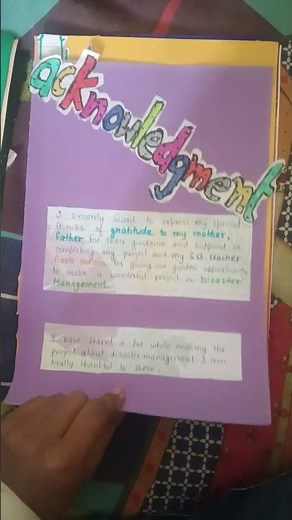 acknowledgment
I sincerely want to express my special
thanks & gratitude to my mother,
father for their guidance and support in
completing my project and my SST teacher
for giving me golden opportunity
to make a wonderful project on Disaster
Management.
I have learnt a lot while making the
project about disaster management I am
really thankful to them.